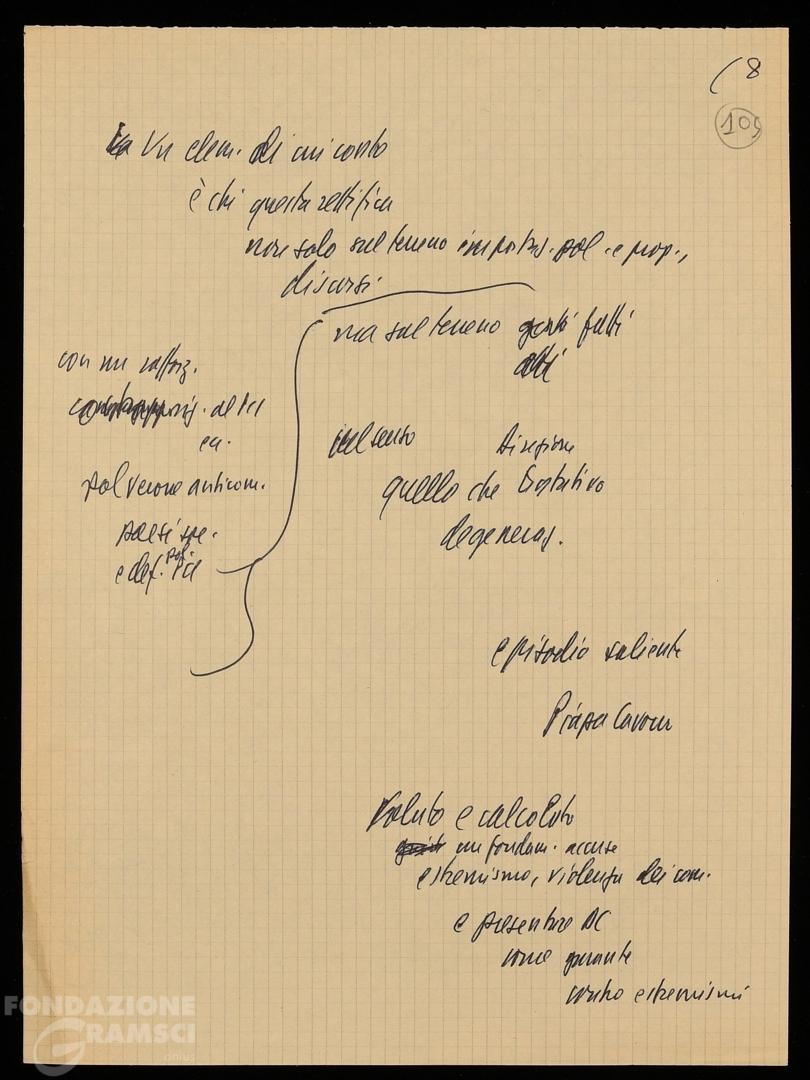 (8
109
Un elem. di
è che questa rettifica
non solo sul terreno impostaz. pol. e prop.,
discorsi
ma sul terreno fatti
atti
con un rafforz.
al PCI
ec.
polverone anticom.
nel senso Direzione
quello che tentativo
degeneraz.
e def. pol. PCI
episodio saliente
Piazza Cavour
Voluto e calcolato
un fondam. accuse
estremismo, violenza dei com.
e presentare DC
come garante
contro estremismi
FONDAZIONE
GRAMSCI
onlus